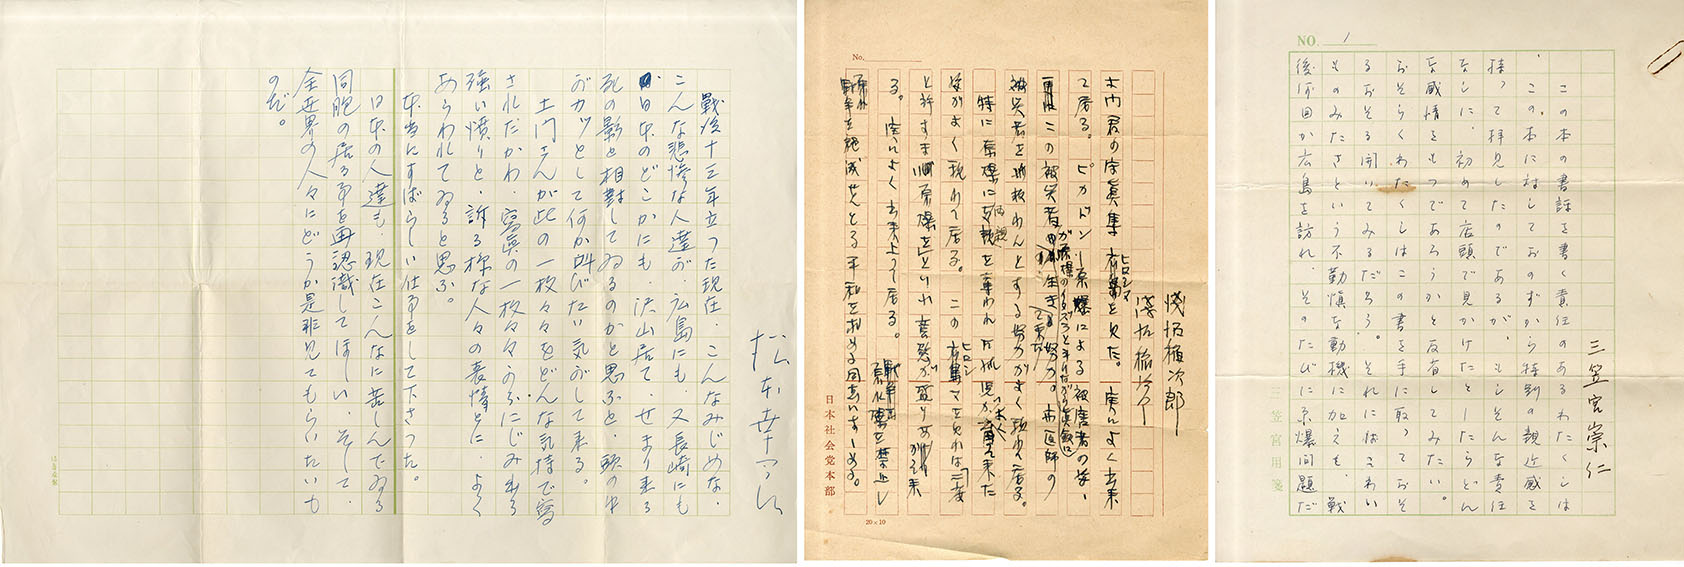 戦後十三年立った現在、こんなみじめな、
こんな悲惨な人達が、広島にも、又長崎にも
日本のどこかにも、沢山居て、せまり来る
死の影と相対してゐるのかと思ふと、頭の中
がカッとして何か叫びたい気がして来る。
土門さんが此の一枚々々をどんな気持で写
されたかわ、写真の一枚々々にじみ出る
強い憤りと、訴る様な人々の表情とに、よく
あらわれてゐると思ふ。
本当にすばらしい仕事をして下さった。
日本の人達も、現在こんなに苦しんでゐる
同胞の居る事を再認識してほしい、そして、
全世界の人々にどうか是非見てもらいたいも
のだ。
No.
浅沼稲次郎
土門君の写真集 ヒロシマ を見た。実によく出来
て居る。ピカドン 原爆による被害者の姿、
この被災者
被災者を救わんとする努力がよく現れて居る。
特に原爆に両親を奪われ
姿がよく現われて居る。この ヒロシマ を見れば 二度
と許すまじ原爆をといふ意慾が盛りあがって来
る。実によく出来上って居る。
戦争を絶滅せんとする平和を求める同志にすゝめる。
日本社会党本部
20×10
NO. 1
三笠宮崇仁
この本の書評を書く責任のあるわたくしは
、この本に対しておのずから特別の親近感を
持って拝見したのであるが、もしそんな責任
なしに、初めて店頭で見かけたとしたらどん
な感情をもつであろうかと反省してみたい。
おそらくわたくしはこの書を手に取っておそ
るおそる開いてみるだろう。それにはこわい
ものみたさという不勤慎な動機に加えて、戦
後何回か広島を訪れ、そのたびに原爆問題だ
三笠宮用箋